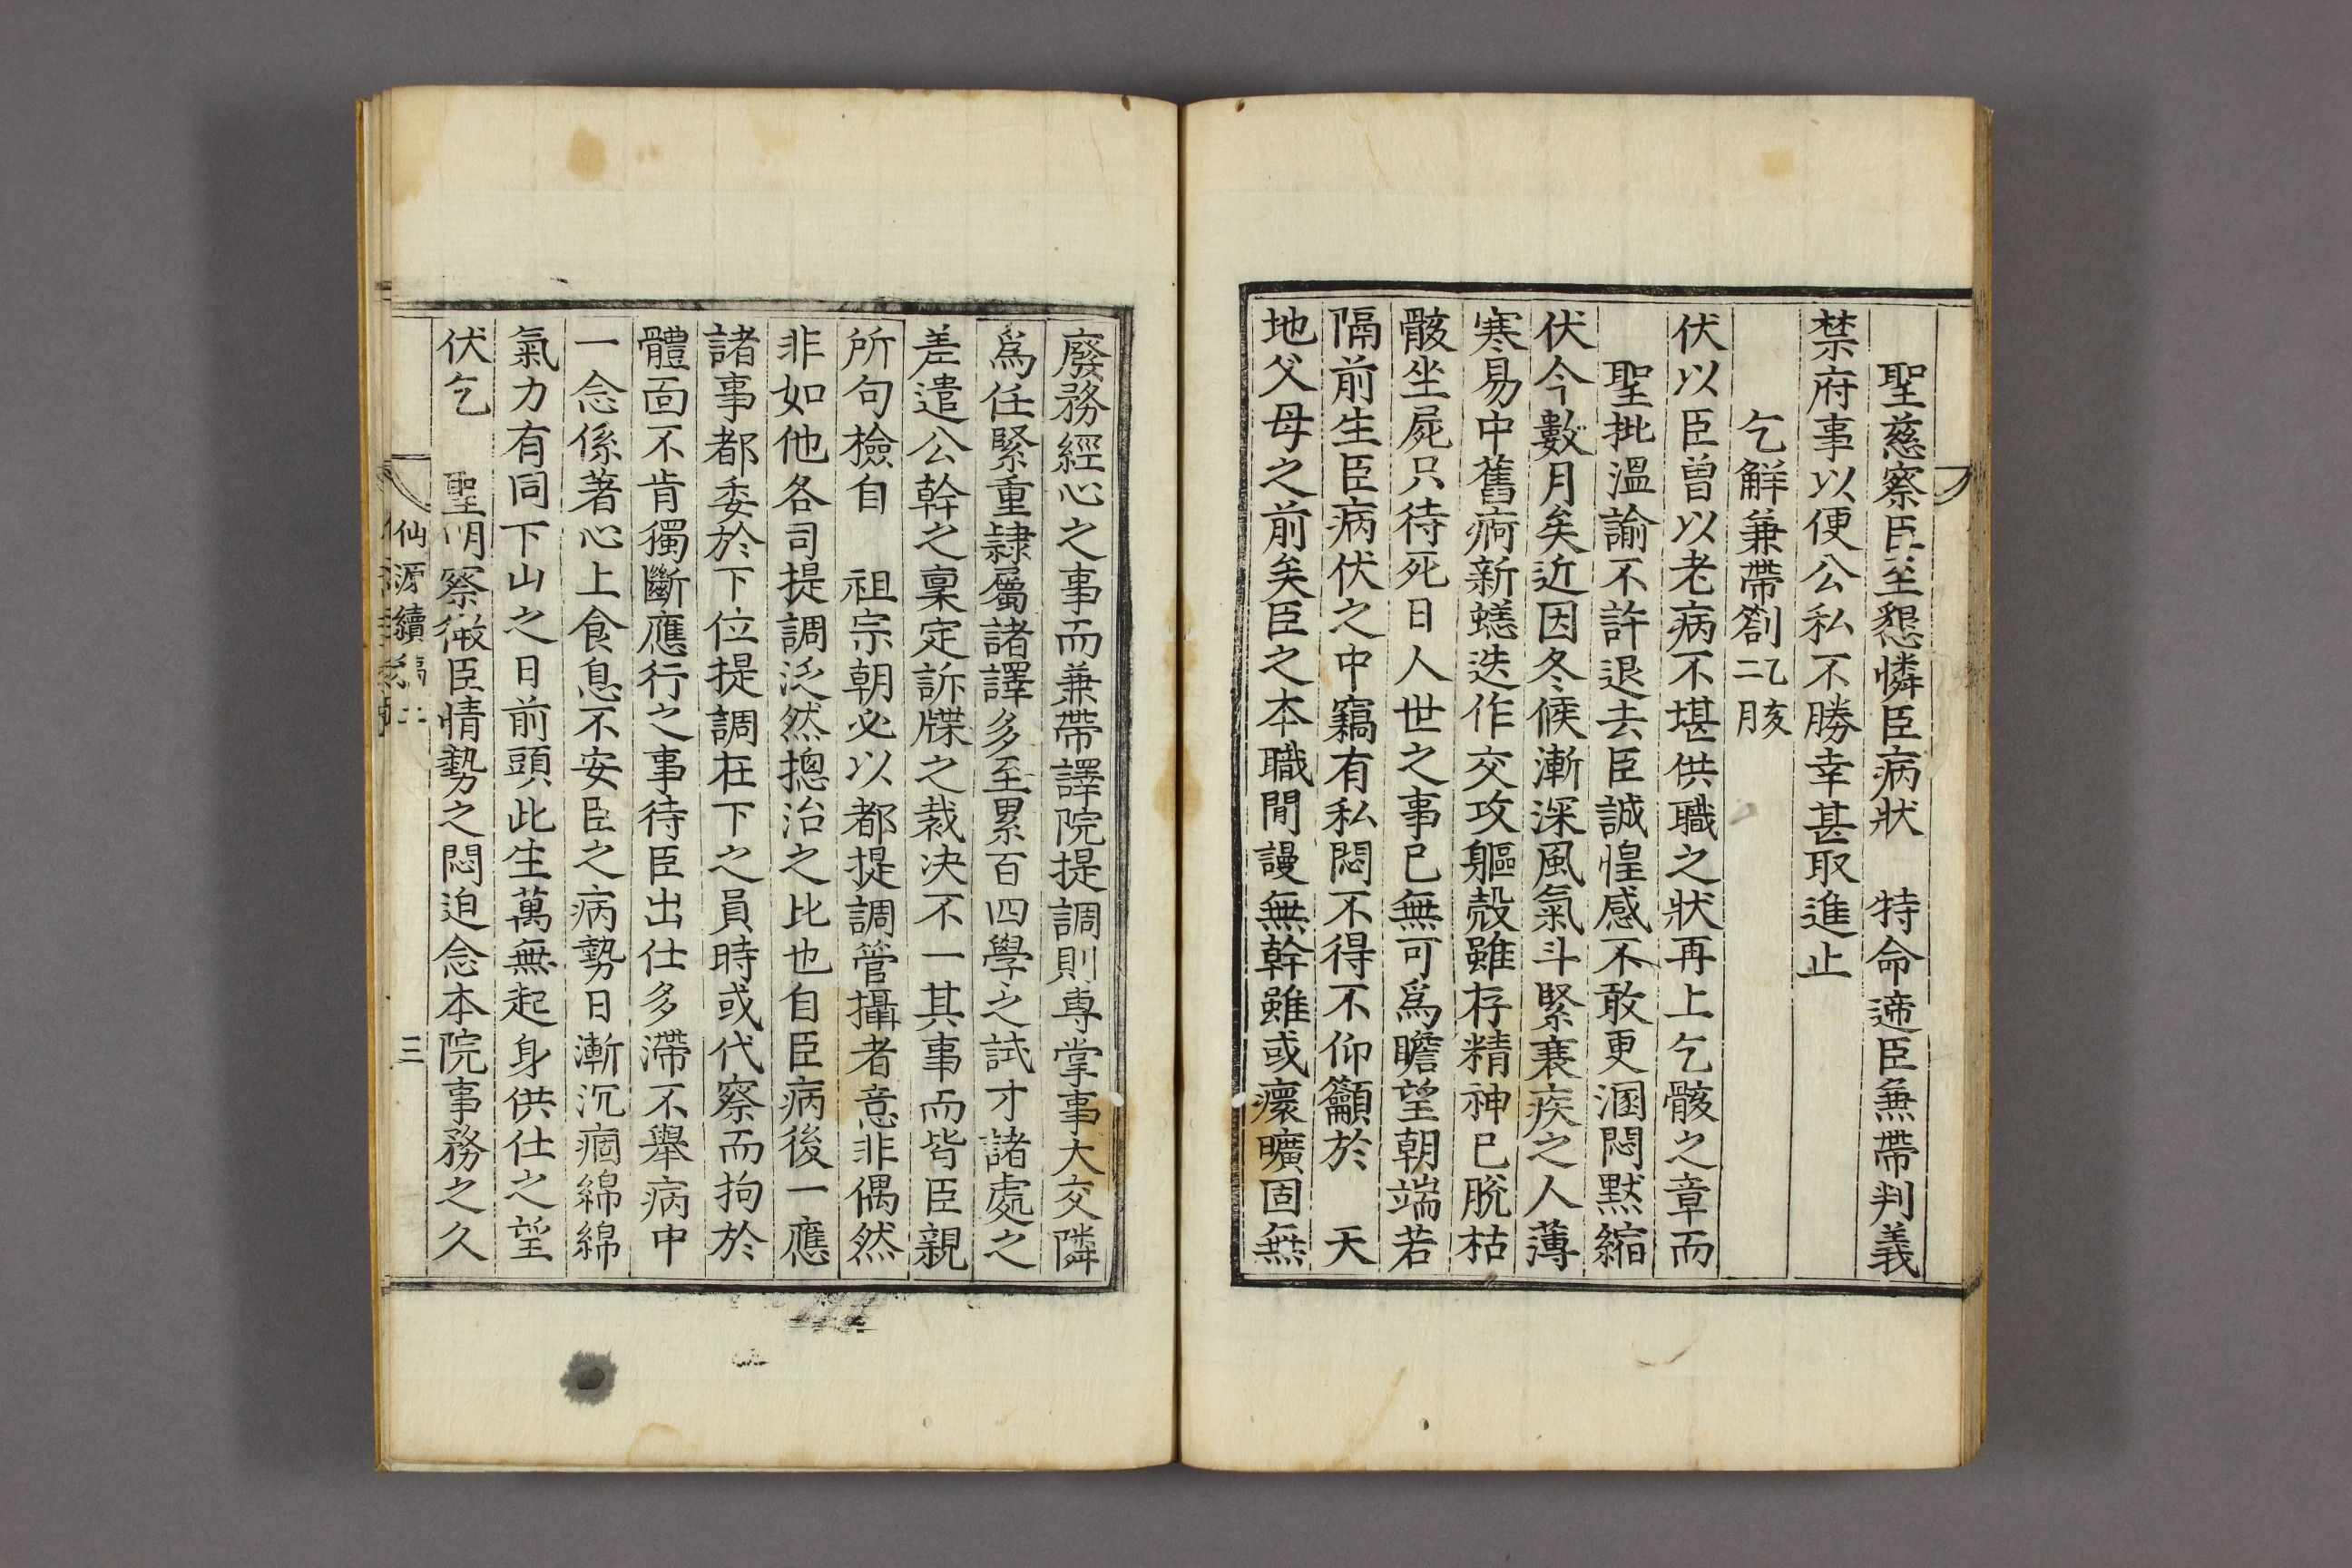 聖慈察臣至懇憐臣病狀 特命遆臣兼帶判義
禁府事以便公私不勝幸甚取進止
乞解兼帶劄 二 乙亥 月
伏以臣曾以老病不堪供職之狀再上乞骸之章而
聖批溫諭不許退去臣誠惶感不敢更溷悶默縮
伏今數月矣近因冬候漸深風氣斗緊衰疾之人薄
寒易中舊痾新蟋迭作交攻軀殼雖存精神已脫枯
骸坐屍只待死日人世之事已無可爲瞻望朝端若
隔前生臣病伏之中竊有私悶不得不仰籲於 天
地父母之前矣臣之本職閒謾無幹雖或癏曠固無
廢務經心之事而兼帶譯院提調則專掌事大交隣
爲任緊重隷屬諸譯多至累百四學之試才諸處之
差遣公幹之稟定訴牒之裁決不一其事而皆臣親
所句檢自 祖宗朝必以都提調管攝者意非偶然
非如他各司提調泛然摠治之比也自臣病後一應
諸事都委於下位提調在下之員時或代察而拘於
體面不肯獨斷應行之事待臣出仕多滯不擧病中
一念係著心上食息不安臣之病勢日漸沉痼綿綿
氣力有同下山之日前頭此生萬無起身供仕之望
伏乞 聖明察微臣情勢之悶迫念本院事務之久
仙源續稿 二 三